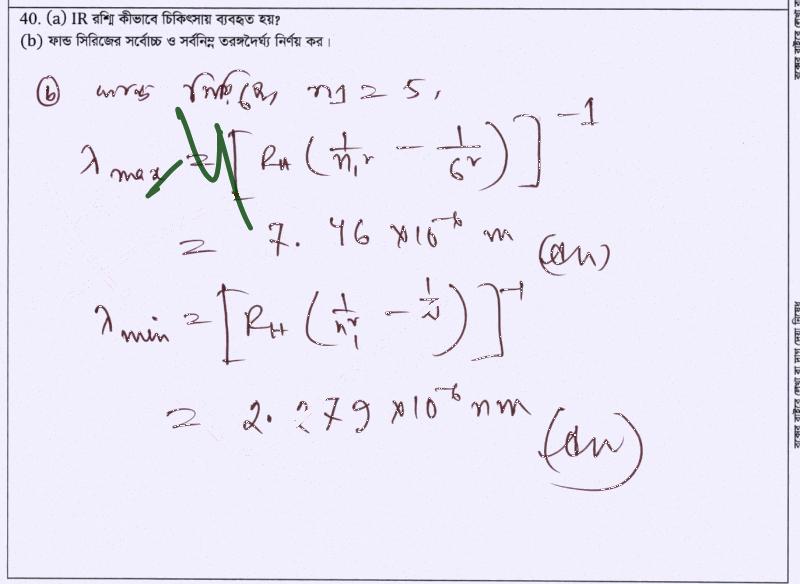 40. (a) IR রশ্মি কীভাবে চিকিৎসায় ব্যবহৃত হয়?
(b) ফান্ড সিরিজের সর্বোচ্চ ও সর্বনিম্ন তরঙ্গদৈর্ঘ্য নির্ণয় কর।
ⓑ ফান্ড সিরিজে, n1 = 5,
λ max = [ R_H ( 1/n₁² − 1/6² ) ]⁻¹
= 7.46 ×10⁻⁶ m (Ans)
λ min = [ R_H ( 1/n₁² − 1/∞ ) ]⁻¹
= 2.279 ×10⁻⁶ nm (Ans)